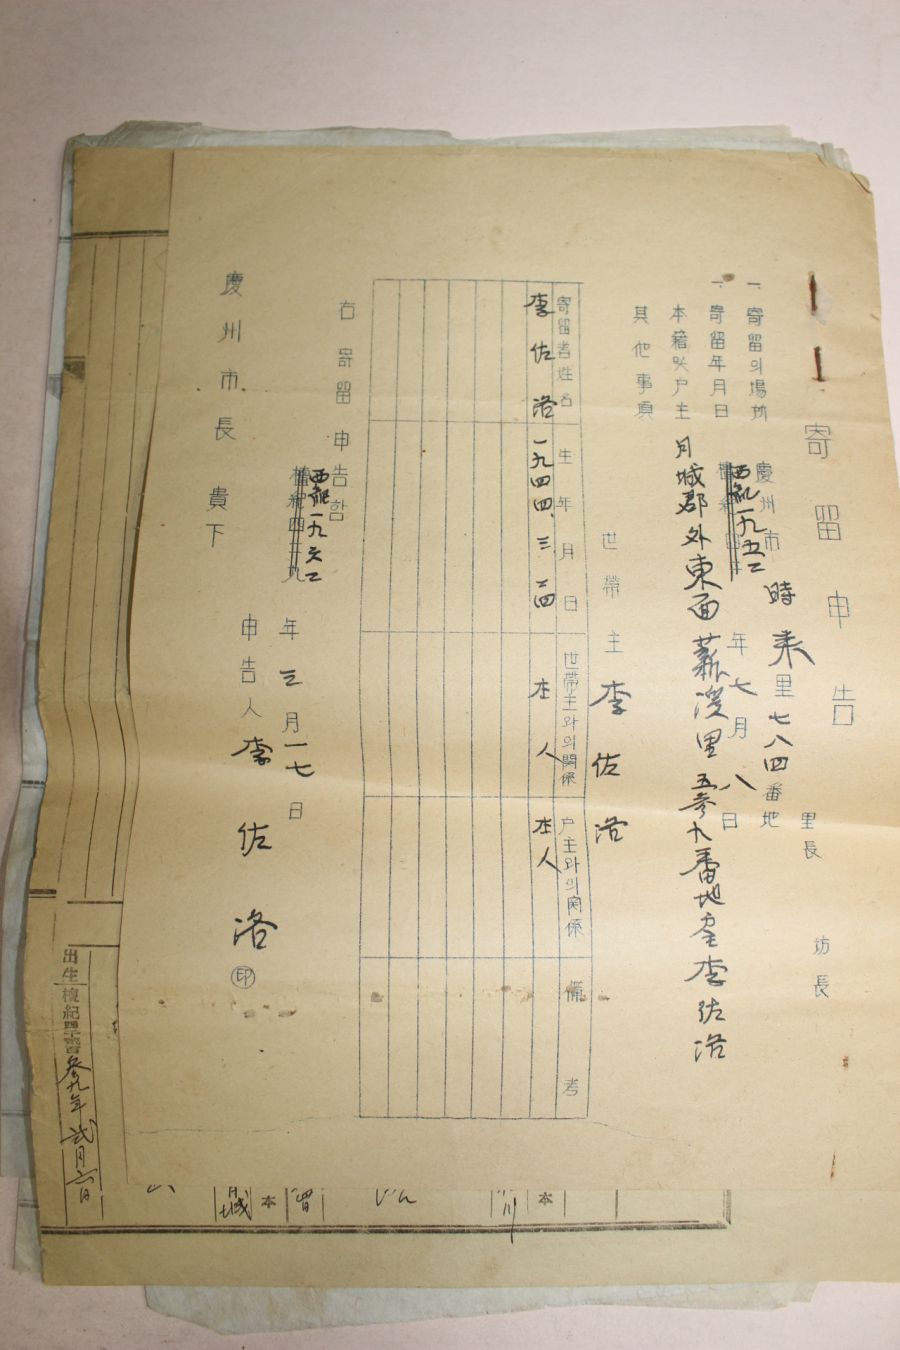 寄留申告
里長
坊長
一、寄留의場所 慶州市 時來里七八四番地
一、寄留年月日 西紀一九五二年七月八日
本籍및戶主 月城郡外東面 里五參九番地 李佐洛
其他事項
世帶主 李佐洛
寄留者姓名 生年月日 世帶主와의關係 戶主와의關係 備考
李佐洛 一九四四、三、二四 本人 本人
右寄留申告함
西紀一九六二年三月一七日
申告人 李佐洛 印
慶州市長 貴下
出生檀紀四千貳百參九年貳月六日
城
本
本